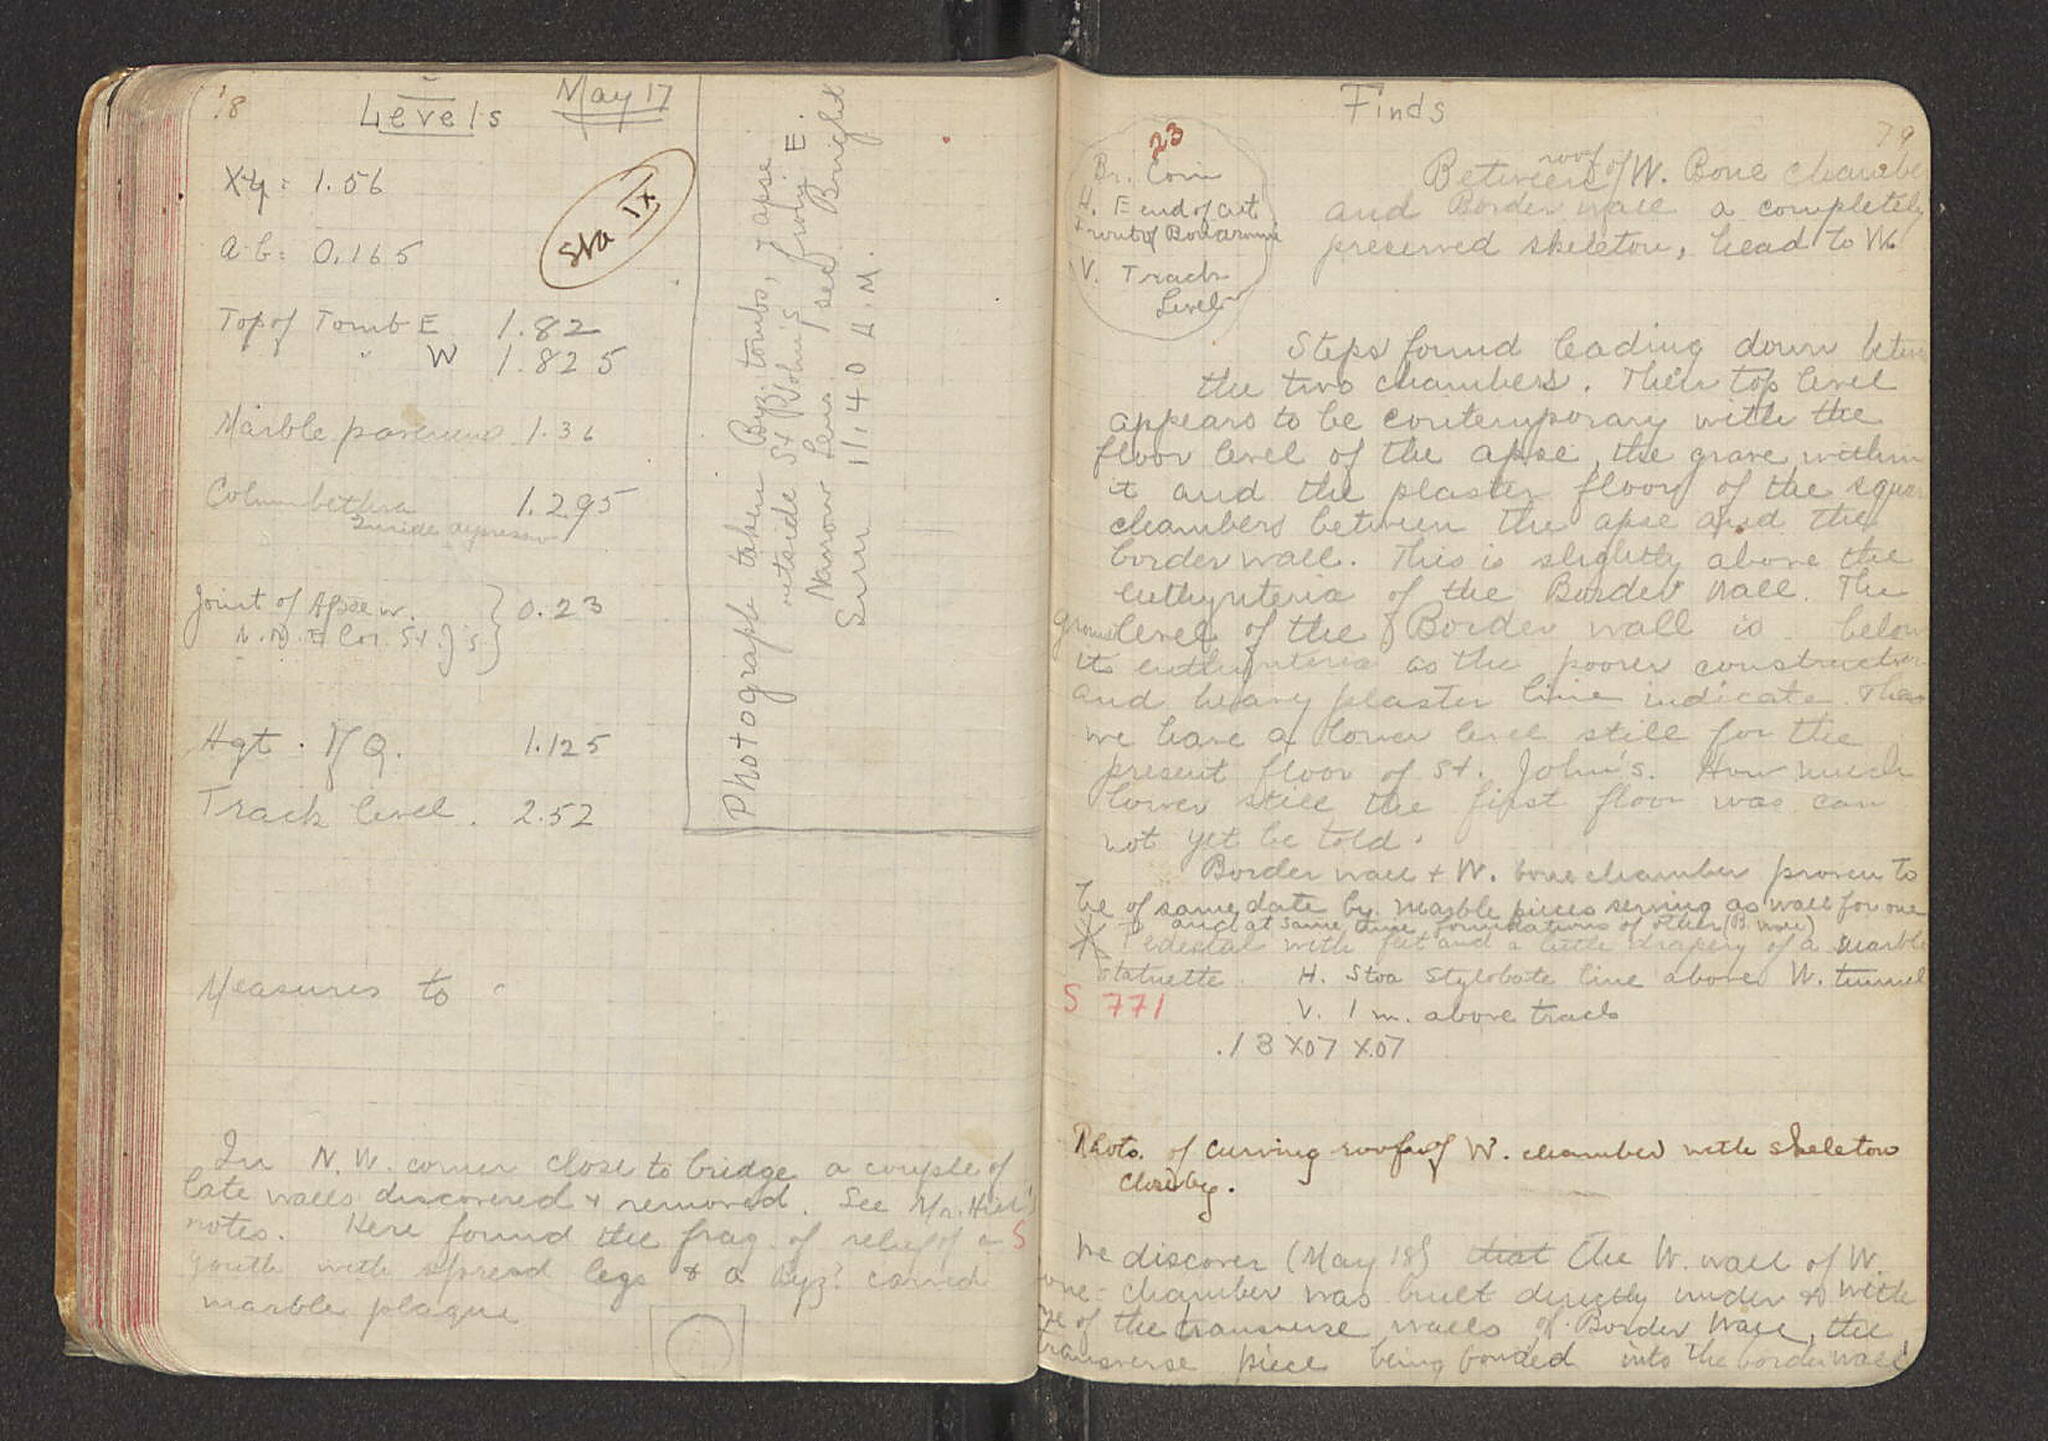 78
Levels May 17
Sta IX
Xy = 1.56
ab = 0.165
Top of Tomb E 1.82
" W 1.825
Marble pavement 1.36
Columbethra 1.295
Inside depression
Joint of Apse w. } 0.23
N. N. E Cor. St. J's
Hgt. 1.125
Track level. 2.52
Measures to
Photograph taken Byz. tombs, apse
outside St. John's from E.
Narrow lens. / sec Bright
Sun 11:40 A.M.
In N.W. corner close to bridge a couple of
late walls discovered + removed. See Mr. Hill's
notes. Here found the frag. of relief of a S
youth with spread legs & a Byz? carved
marble plaque
Finds
79
23
Br. Coin
H. E end of cut
+ront of Boneroom
V. Track
Level
Between roof of W. Bone chambe
and Border wall a completely
preserved skeleton, head to W.
Steps found leading down betwe
the two chambers. Their top level
appears to be contemporary with the
floor level of the apse, the grave within
it and the plaster floor of the squar
chambers between the apse and the
border wall. This is slightly above the
euthynteria of the Border wall. The
ground level of the Border wall is below
its euthynteria as the poorer construction
and heavy plaster line indicate. Thus
we have a lower level still for the
present floor of St. John's. How much
lower still the first floor was can
not yet be told.
Border wall + W. bone chamber proven to
be of same date by marble pieces serving as wall for one
and at same time foundations of other (B. wall)
Pedestal with feet and a little drapery of a marble
statuette. H. Stoa stylobate line above W. tunnel
S 771 V. 1 m. above track
.13 X.07 X.07
Photo. of curving roof of W. chamber with skeleton
closeby.
We discover (May 18) that the W. wall of W.
one-chamber was built directly under & with
ne of the transverse walls of Border wall, the
transverse piece being bonded into the border wall